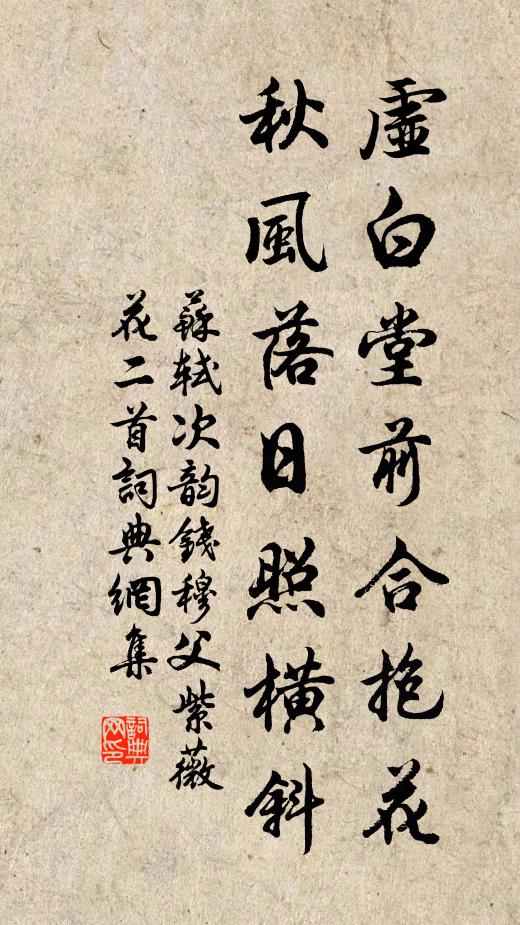 虛白堂前合抱花
秋風落日照橫斜
蘇軾次韵錢穆父紫薇
花二首詞典網集
詞典網印